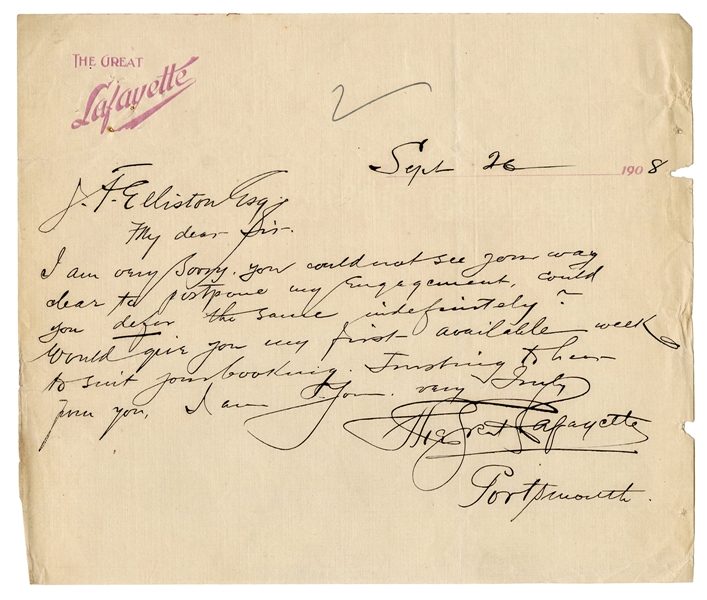 THE GREAT
Lafayette
Sept 26 1908
J. F. Elliston Esq
My dear Sir.
I am very Sorry. you could not see your way
clear to postpone my Engagement, could
you defer the same indefinitely?
Would give you my first available week
to suit your booking. Trusting to hear
from you, I am Your very Truly
The Great Lafayette
Portsmouth.